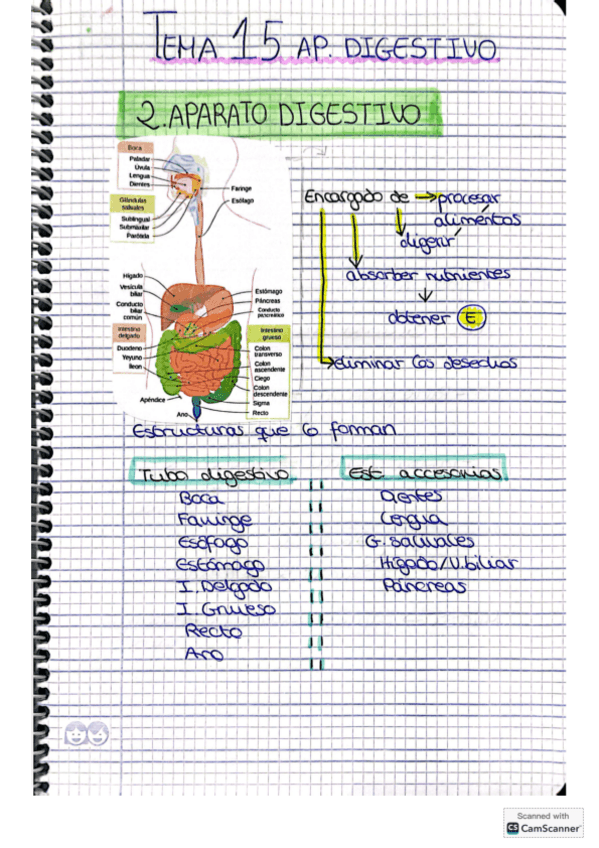 TEMA 15 AP. DIGESTIVO
2. APARATO DIGESTIVO
Boca
Paladar
Úvula
Lengua
Dientes
Glándulas
salivales
Sublingual
Submaxilar
Parótida
Faringe
Esófago
Hígado
Vesícula
biliar
Conducto
biliar
común
Intestino
delgado
Duodeno
Yeyuno
Íleon
Apéndice
Ano
Estómago
Páncreas
Conducto
pancreático
Intestino
grueso
Colon
transverso
Colon
ascendente
Ciego
Colon
descendente
Sigma
Recto
Encargado de → procesar
alimentos
digerir
absorber nutrientes
↓
obtener E
eliminar los desechos
Estructuras que lo forman
Tubo digestivo
Boca
Faringe
Esófago
Estómago
I. Delgado
I. Grueso
Recto
Ano
Est accesorias
Dientes
Lengua
G. Salivales
Hígado/V. biliar
Páncreas
Scanned with
CS CamScanner